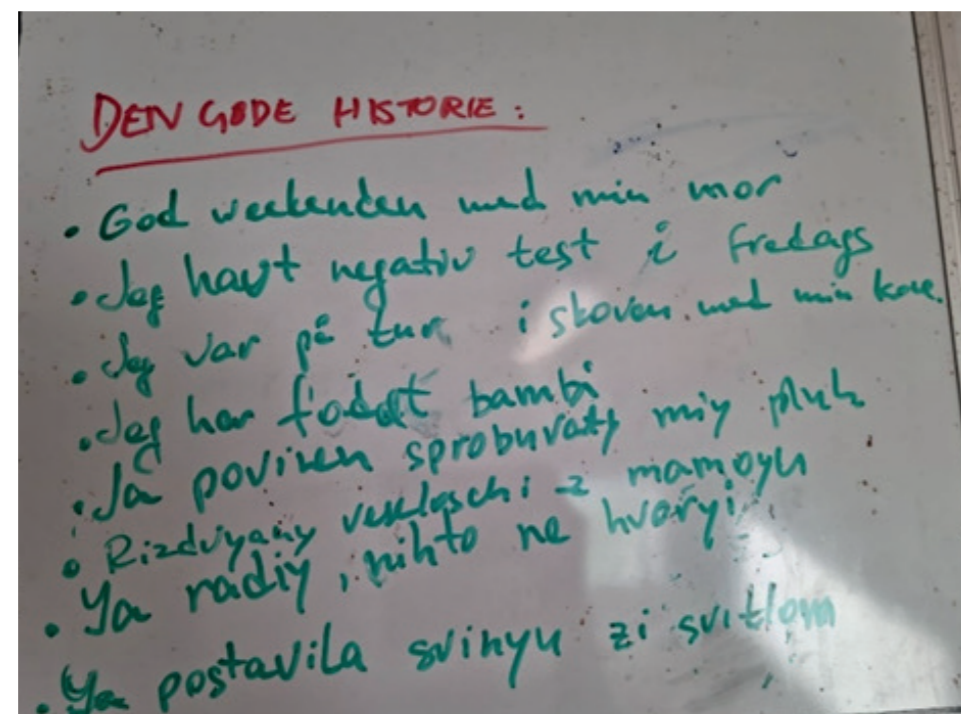 DEN GODE HISTORIE:
• God weekenden med min mor
• Jeg havt negativ test i fredags
• Jeg var på tur i skoven med min kone.
• Jeg har foddt bambi
• Ja poviren sprobuvaty miy pluh
• Rizdvyany veseloschi z mamoyu
• Ya radiy, nihto ne hvoryi
• Ya postavila svinyu zi svitlom